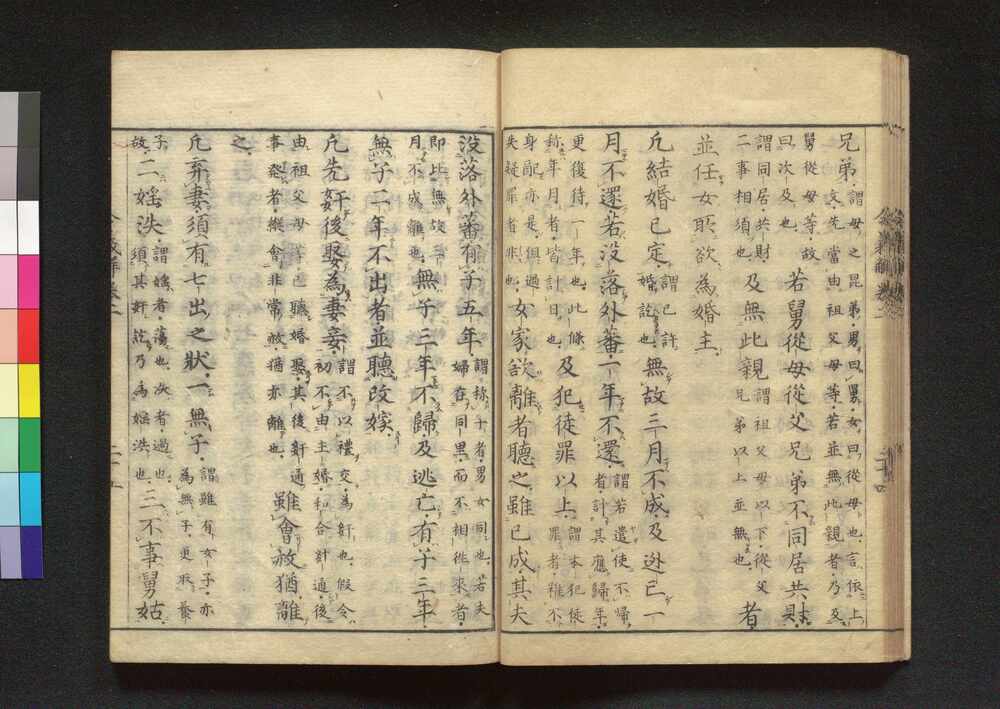 兄弟謂母之昆弟男曰舅女曰從母也言依上
文先當由祖父母等若並無此親者乃及
舅從母等故曰次及也若舅從母從父兄弟不同居共財
謂同居共財二事相須也及無此親謂祖父母以下從父兄弟以上並無也者
並任女所欲為婚主
凡結婚已定謂已許婚訖也無故三月不成及逃亡一
月不還若没落外蕃一年不還謂若遣使不歸者計其應歸年
更後待一年也此條稱年月者皆計日也及犯徒罪以上謂本犯徒罪者雖不
身配亦是但過失疑罪者非也女家欲離者聽之雖已成其夫
没落外蕃有子五年謂称子者男女同也若夫婦在同里而不相徃來者
即比無故三月不成離也無子三年不歸及逃亡有子三年
無子二年不出者並聽改嫁
凡先姧後娶為妻妾謂不以禮交為奸也假令初不由主婚和合奸通後
由祖父母等已聽婚娶其後奸通事發者縱會非常赦猶亦離也雖會赦猶離
之
凡弃妻須有七出之狀一無子謂雖有女子亦為無子更取養
子故二婬泆謂婬者蕩也泆者過也須其奸訖乃為婬泆也三不事舅姑